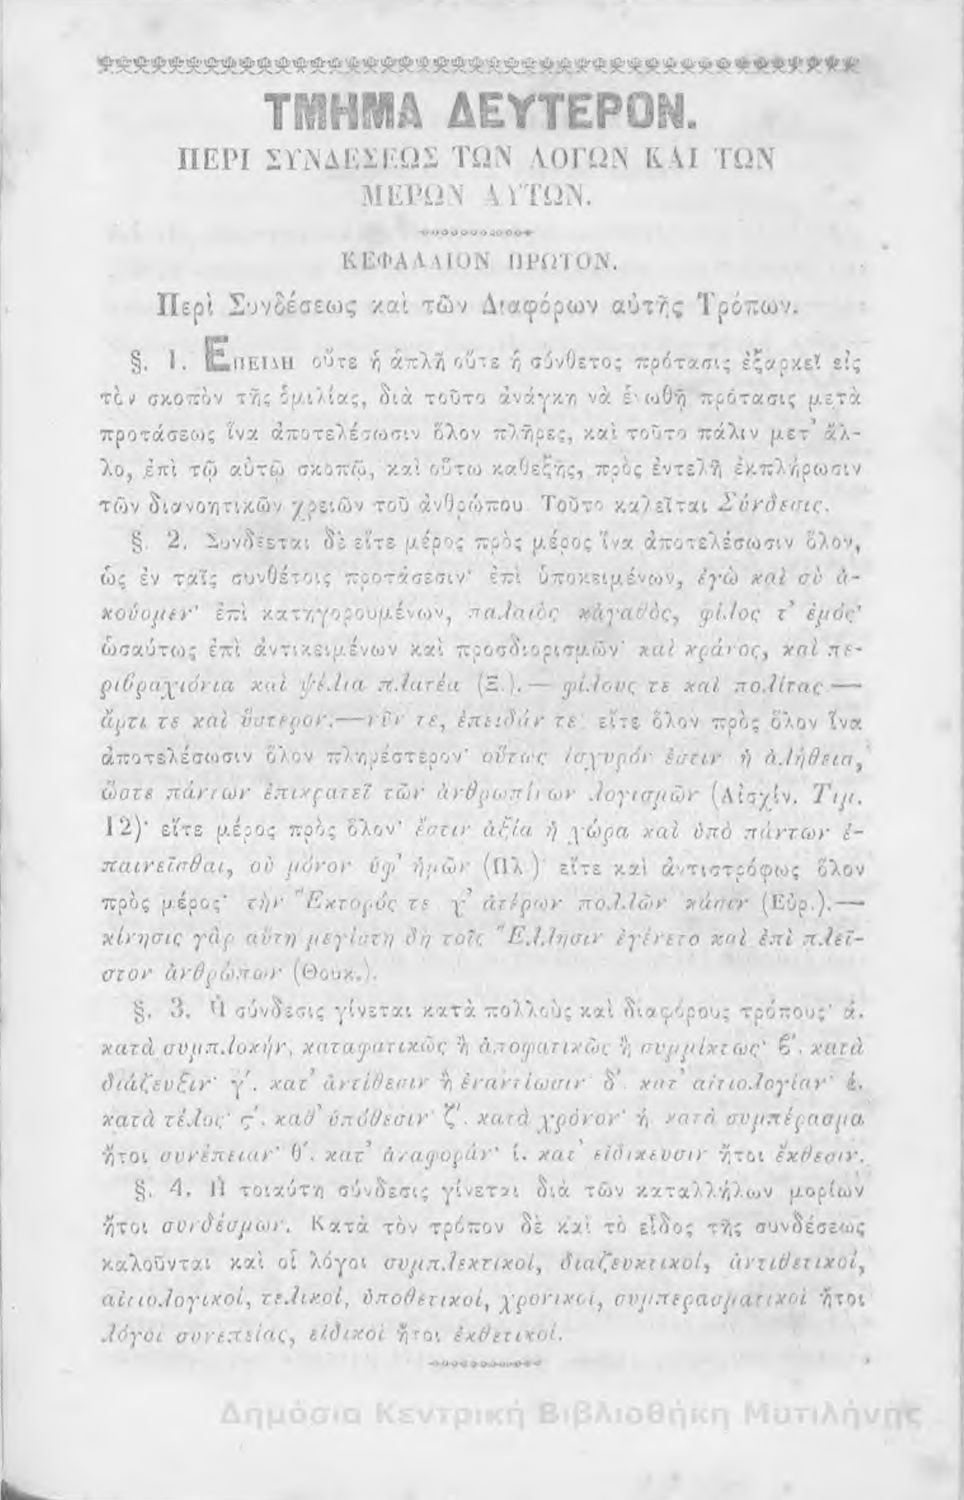 ΤΜΗΜΑ ΔΕΥΤΕΡΟΝ.
ΠΕΡΙ ΣΥΝΔΕΣΕΩΣ ΤΩΝ ΛΟΓΩΝ ΚΑΙ ΤΩΝ
ΜΕΡΩΝ ΑΥΤΩΝ.
ΚΕΦΑΛΑΙΟΝ ΠΡΩΤΟΝ.
Περὶ Συνδέσεως καὶ τῶν Διαφόρων αὐτῆς Τρόπων.
§. 1. ΕΠΕΙΔΗ οὔτε ἡ ἁπλῆ οὔτε ἡ σύνθετος πρότασις ἐξαρκεῖ εἰς
τὸν σκοπὸν τῆς ὁμιλίας, διὰ τοῦτο ἀνάγκη νὰ ἑνωθῇ πρότασις μετὰ
προτάσεως ἵνα ἀποτελέσωσιν ὅλον πλῆρες, καὶ τοῦτο πάλιν μετ᾽ ἄλ-
λο, ἐπὶ τῷ αὐτῷ σκοπῷ, καὶ οὕτω καθεξῆς, πρὸς ἐντελῆ ἐκπλήρωσιν
τῶν διανοητικῶν χρειῶν τοῦ ἀνθρώπου. Τοῦτο καλεῖται Σύνδεσις.
§. 2. Συνδέεται δὲ εἴτε μέρος πρὸς μέρος ἵνα ἀποτελέσωσιν ὅλον,
ὡς ἐν ταῖς συνθέτοις προτάσεσιν· ἐπὶ ὑποκειμένων, ἐγὼ καὶ σὺ ἀ-
κούομεν· ἐπὶ κατηγορουμένων, παλαιὸς κἀγαθὸς, φίλος τ᾽ ἐμός·
ὡσαύτως ἐπὶ ἀντικειμένων καὶ προσδιορισμῶν· καὶ κράνος, καὶ πε-
ριβραχιόνια καὶ ψέλια πλατέα (Ξ.).— φίλους τε καὶ πολίτας —
ἄρτι τε καὶ ὕστερον.—νῦν τε, ἐπειδάν τε· εἴτε ὅλον πρὸς ὅλον ἵνα
ἀποτελέσωσιν ὅλον πληρέστερον· οὕτως ἰσχυρόν ἐστιν ἡ ἀλήθεια,
ὥστε πάντων ἐπικρατεῖ τῶν ἀνθρωπίνων λογισμῶν (Αἰσχίν. Τιμ.
12)· εἴτε μέρος πρὸς ὅλον· ἔστιν ἀξία ἡ χώρα καὶ ὑπὸ πάντων ἐ-
παινεῖσθαι, οὐ μόνον ὑφ᾽ ἡμῶν (Πλ.)· εἴτε καὶ ἀντιστρόφως ὅλον
πρὸς μέρος· τὴν Ἕκτορός τε χ᾽ ἁτέρων πολλῶν κάσιν (Εὐρ.).—
κίνησις γὰρ αὕτη μεγίστη δὴ τοῖς Ἕλλησιν ἐγένετο καὶ ἐπὶ πλεῖ-
στον ἀνθρώπων (Θουκ.).
§. 3. Ἡ σύνδεσις γίνεται κατὰ πολλοὺς καὶ διαφόρους τρόπους· ά.
κατὰ συμπλοκὴν, καταφατικῶς ἢ ἀποφατικῶς ἢ συμμίκτως· β΄. κατὰ
διάζευξιν· γ΄. κατ᾽ ἀντίθεσιν ἢ ἐναντίωσιν· δ΄. κατ᾽ αἰτιολογίαν· έ.
κατὰ τέλος· ς΄. καθ᾽ ὑπόθεσιν· ζ΄. κατὰ χρόνον· ή. κατὰ συμπέρασμα
ἤτοι συνέπειαν· θ΄. κατ᾽ ἀναφοράν· ί. κατ᾽ εἰδίκευσιν ἤτοι ἔκθεσιν.
§. 4. Ἡ τοιαύτη σύνδεσις γίνεται διὰ τῶν καταλλήλων μορίων
ἤτοι συνδέσμων. Κατὰ τὸν τρόπον δὲ καὶ τὸ εἶδος τῆς συνδέσεως
καλοῦνται καὶ οἱ λόγοι συμπλεκτικοί, διαζευκτικοί, ἀντιθετικοί,
αἰτιολογικοί, τελικοί, ὑποθετικοί, χρονικοί, συμπερασματικοί ἤτοι
λόγοι συνεπείας, εἰδικοί ἤτοι ἐκθετικοί.
Δημόσια Κεντρική Βιβλιοθήκη Μυτιλήνης